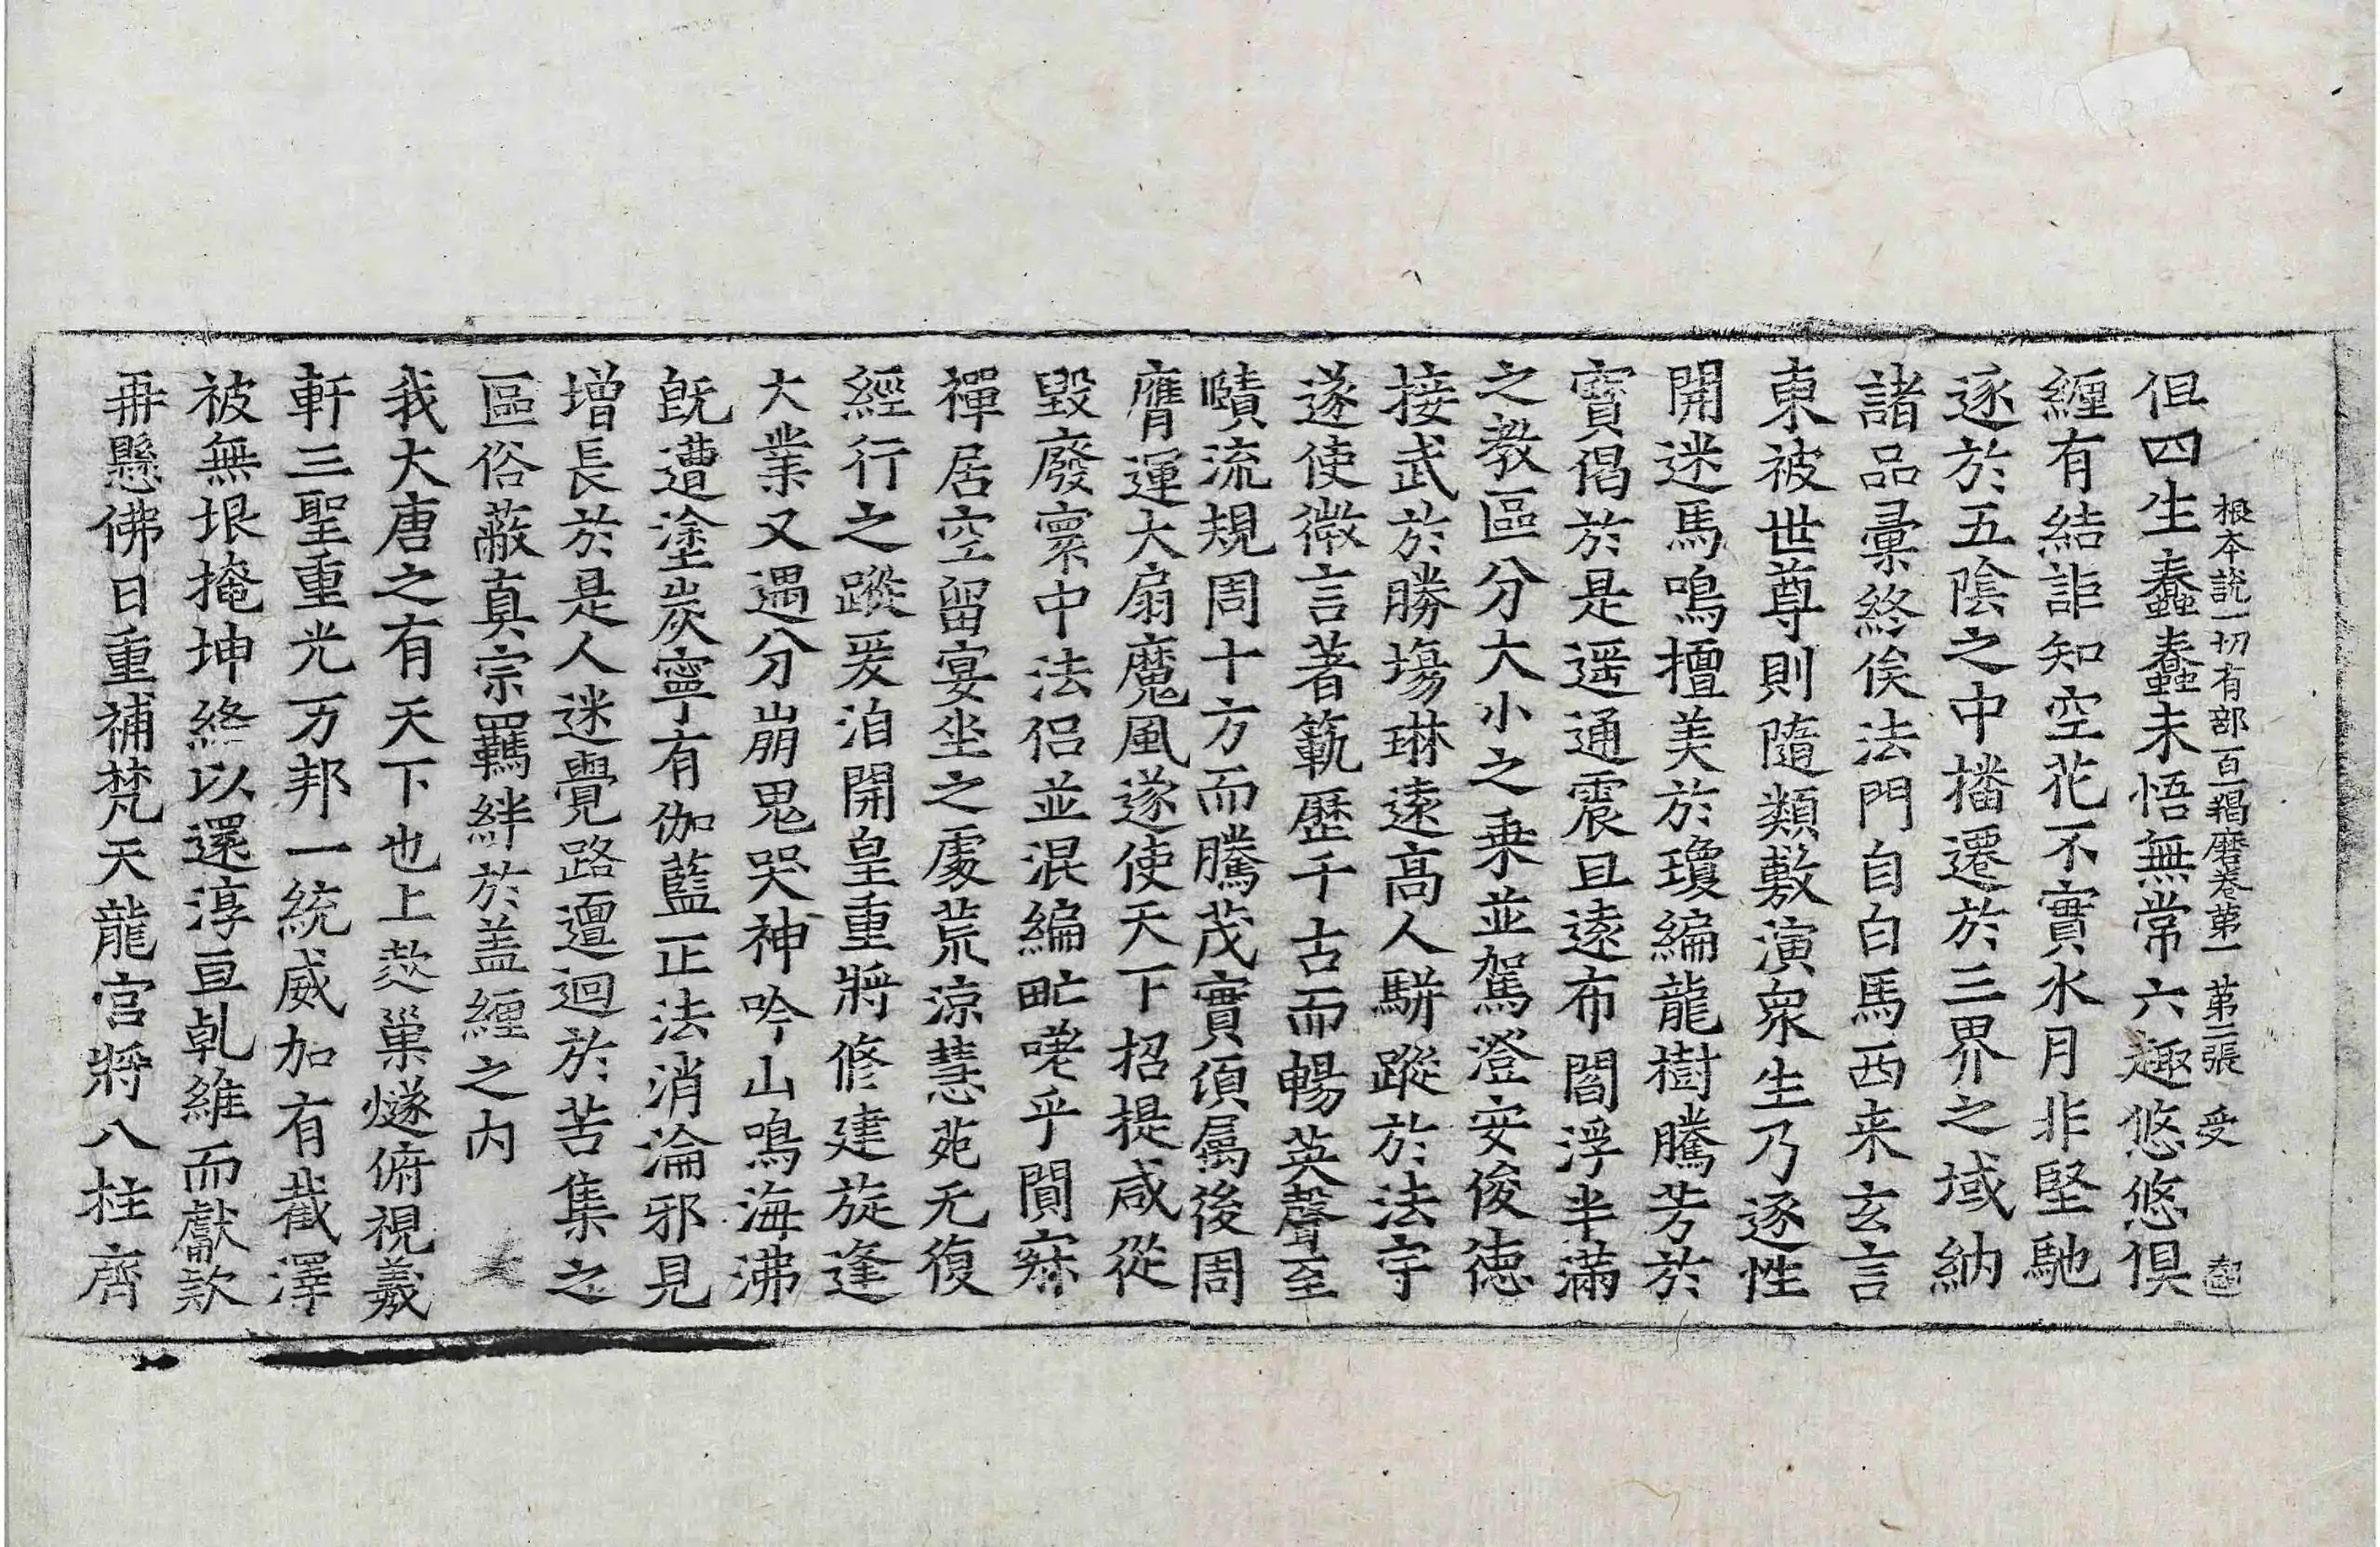 根本說一切有部百一羯磨卷第一 第二張 受
但四生蠢蠢未悟無常六趣悠悠俱
纏有結詎知空花不實水月非堅馳
逐於五陰之中播遷於三界之域納
諸品彙終俟法門自白馬西来玄言
東被世尊則隨類敷演衆生乃逐性
開迷馬鳴擅美於瓊編龍樹騰芳於
寶偈於是遥通震旦遠布閻浮半滿
之教區分大小之乗並駕澄安俊德
接武於勝場琳遠高人騈蹤於法宇
遂使微言著範歷千古而暢英聲至
賾流規周十方而騰茂實湏属後周
膺運大扇魔風遂使天下招提咸從
毀廢寰中法侣並混編甿嗟乎閴寂
禪居空留宴坐之處荒凉慧菀无復
經行之蹤爰洎開皇重將修建旋逢
大業又遇分崩鬼哭神吟山鳴海沸
旣遭塗炭寧有伽藍正法消淪邪見
增長於是人迷覺路邅迴於苦集之
區俗蔽真宗羈絆於盖纏之内
我大唐之有天下也上䒭巢燧俯視羲
軒三聖重光万邦一統威加有截澤
被無垠掩坤絡以還淳亘乹維而獻款
再懸佛日重補梵天龍宮將八柱齊